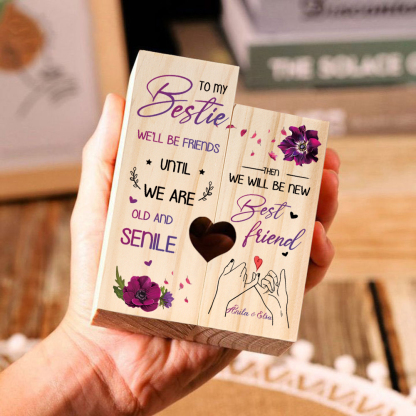 TO MY
Bestie
WE'LL BE FRIENDS
UNTIL
WE ARE
OLD AND
SENILE
THEN
WE WILL BE NEW
Best
friend
Anita & Elsa
THE SOLACE O